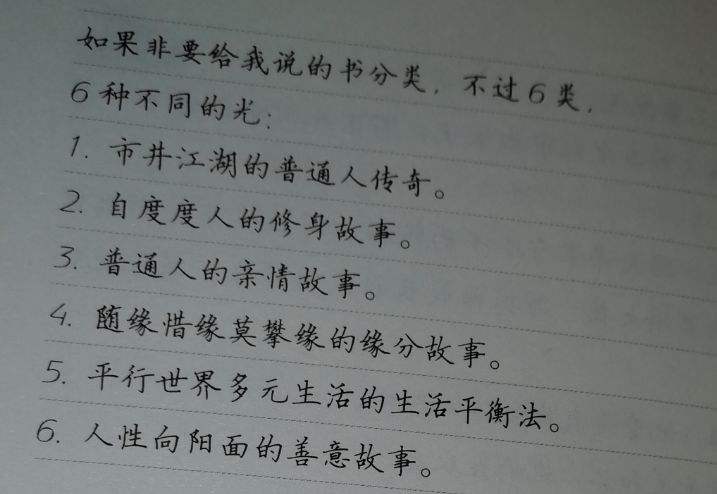 如果非要给我说的书分类，不过6类，
6种不同的光：
1. 市井江湖的普通人传奇。
2. 自度度人的修身故事。
3. 普通人的亲情故事。
4. 随缘惜缘莫攀缘的缘分故事。
5. 平行世界多元生活的生活平衡法。
6. 人性向阳面的善意故事。